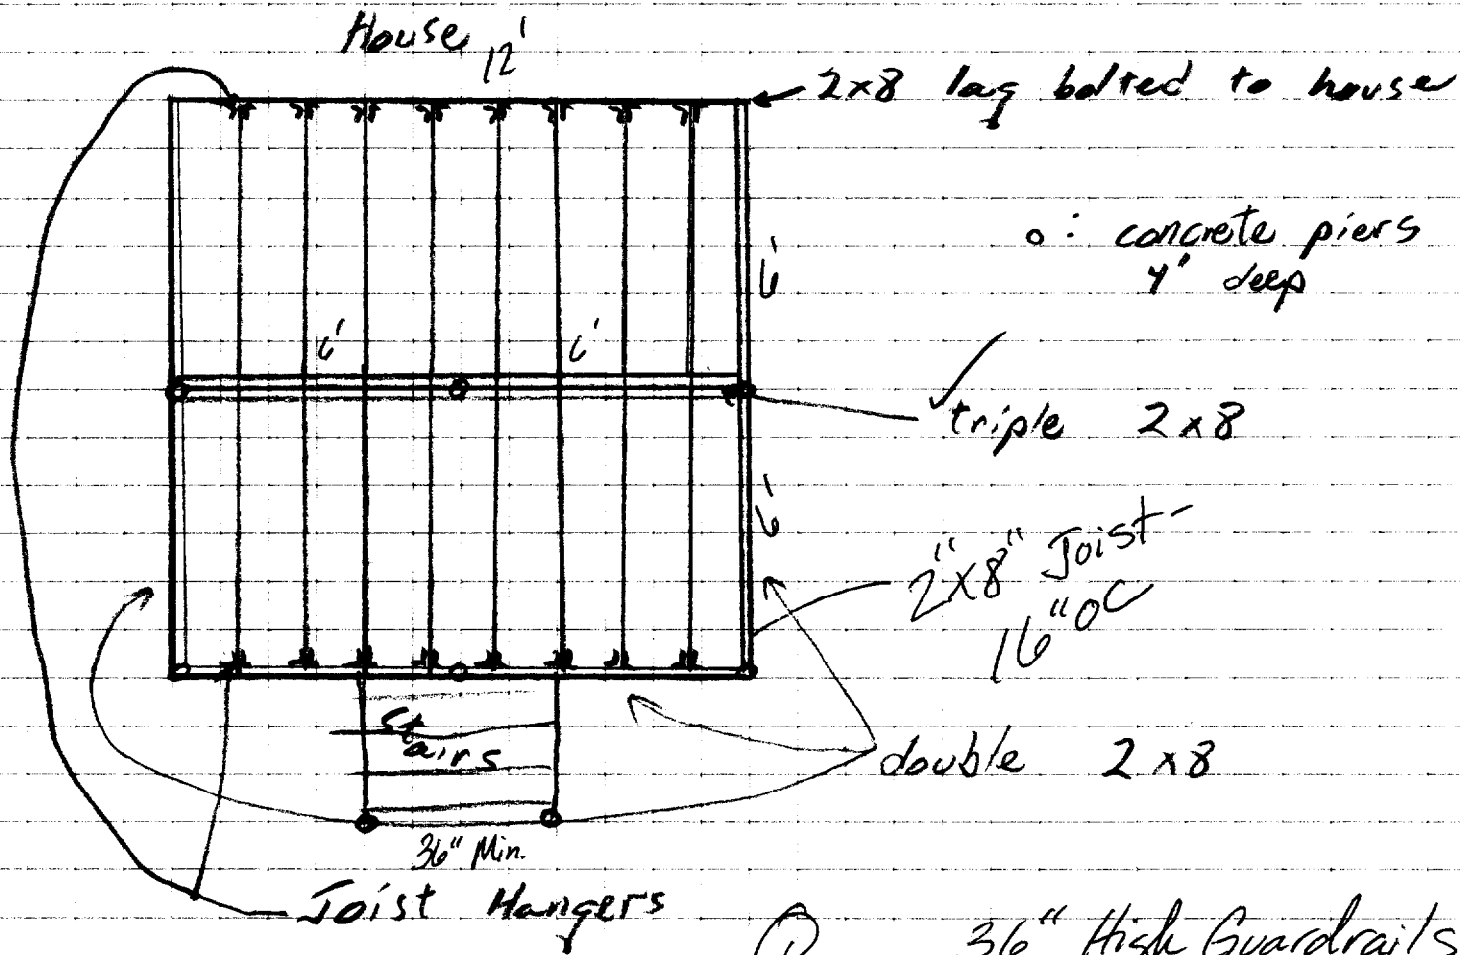 House
12'
2x8 lag bolted to house
o : concrete piers
4" deep
6'
6'
6'
triple 2x8
6'
2"x8" Joist-
16"OC
Stairs
double 2x8
36" Min.
Joist Hangers
1
36" High Guardrails